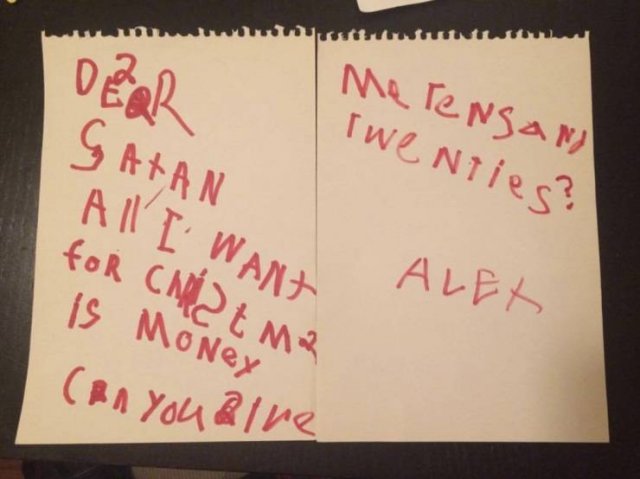 DEaR
SATAN
All I WANt
foR CHiStMa
is MoNey
Can you Give
Me TeNS aNd
TWeNTies?
ALEX